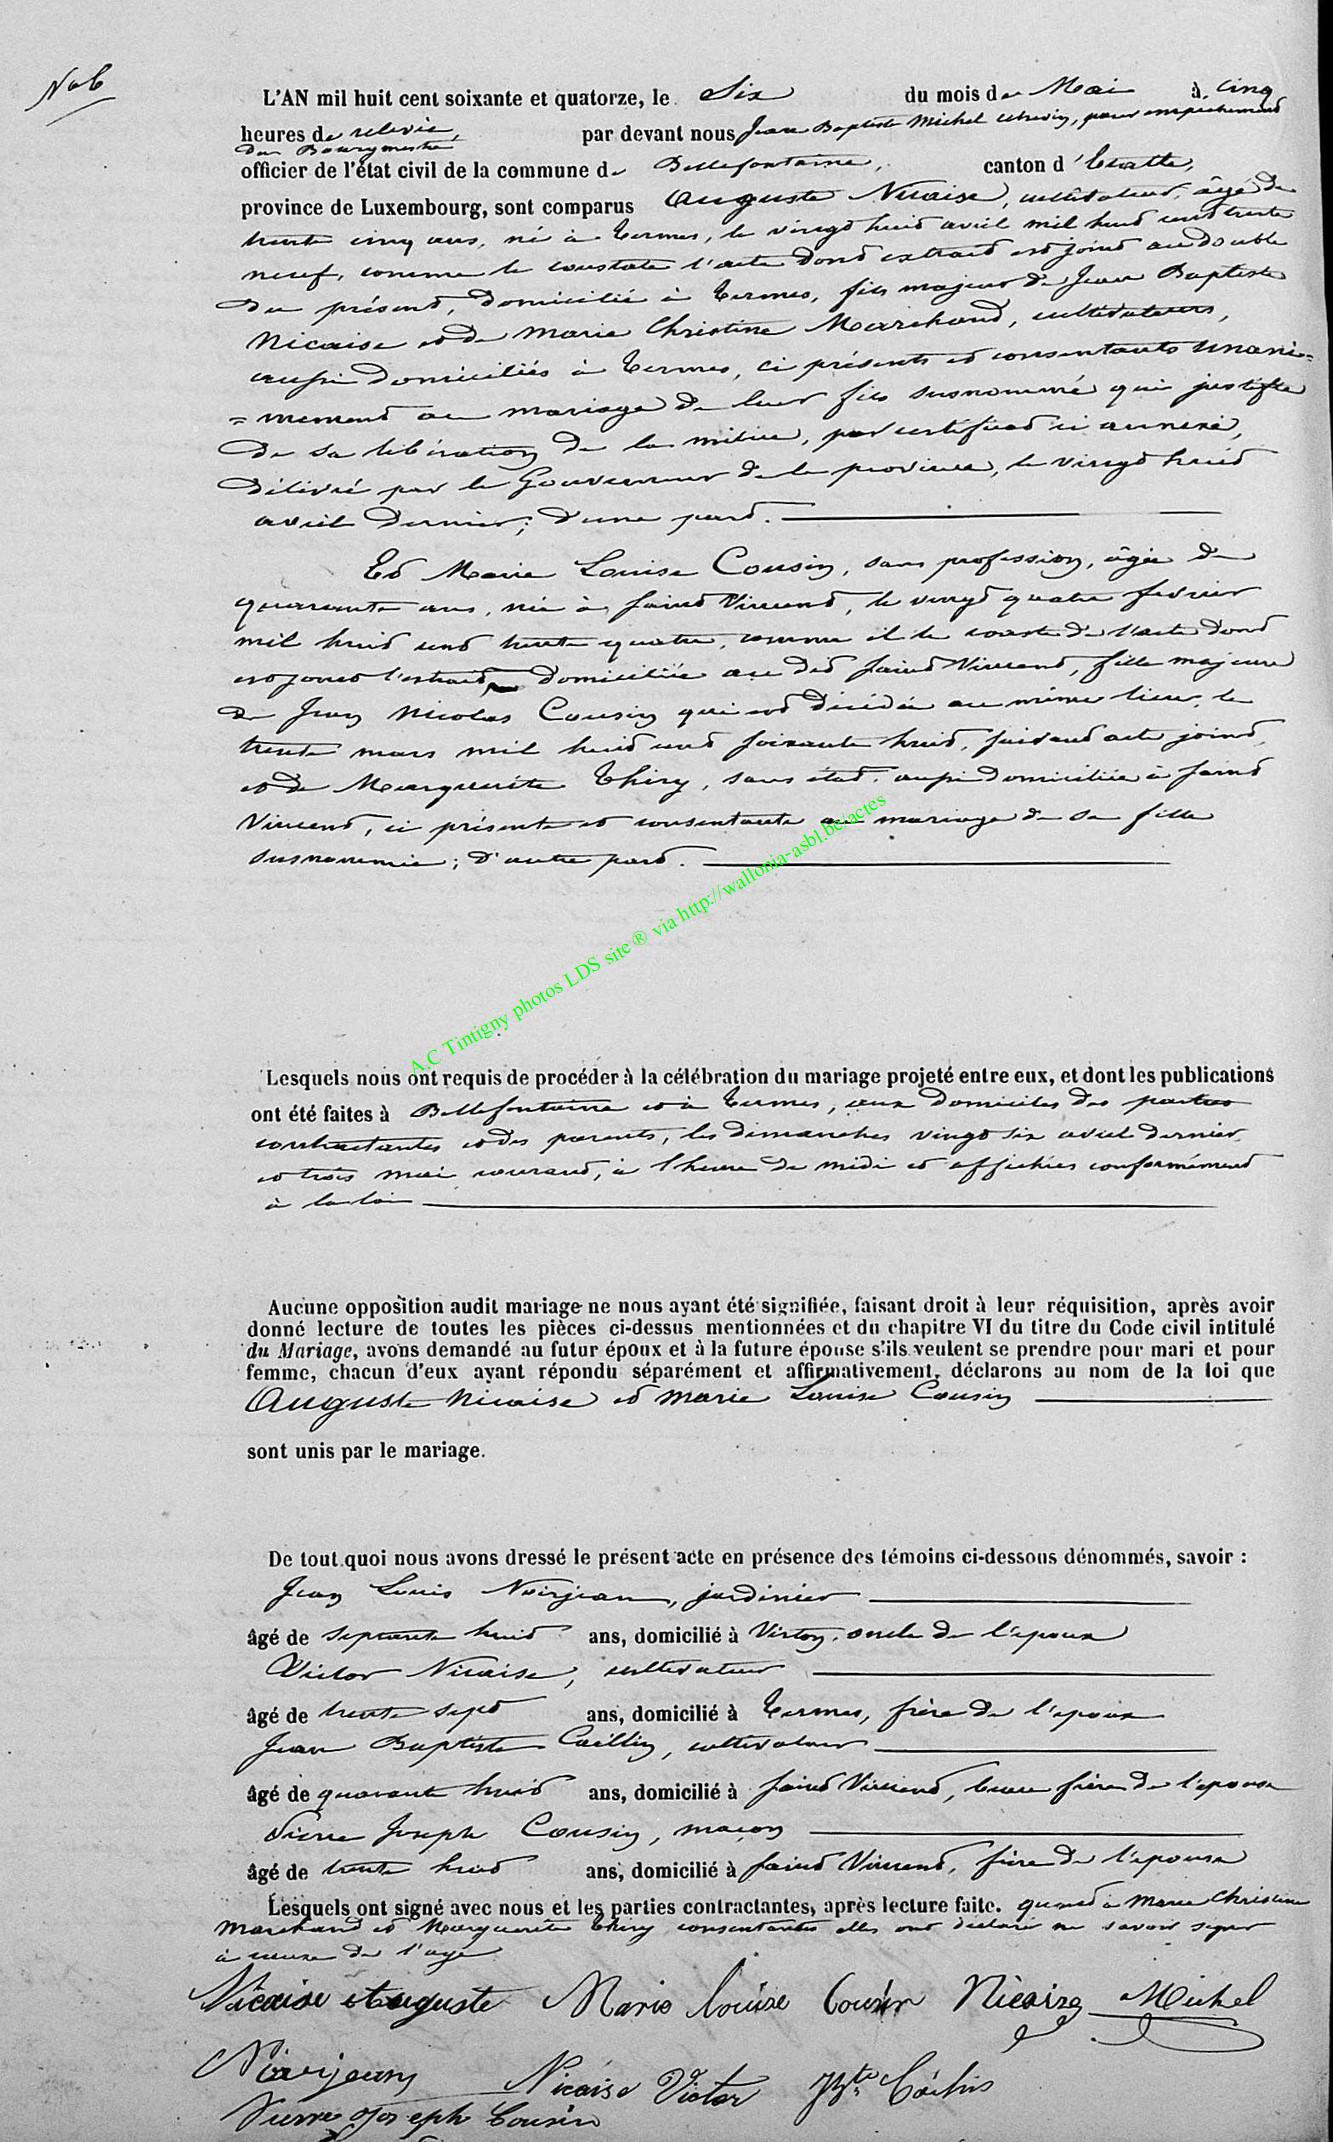 No 6
L'AN mil huit cent soixante et quatorze, le Six du mois de Mai à cinq
heures de relevée, par devant nous Jean Baptiste Michel échevin, pour empêchement
du Bourgmestre
officier de l'état civil de la commune de Bellefontaine, canton d'Etalle,
province de Luxembourg, sont comparus Auguste Nicaise, cultivateur, âgé de
trente cinq ans, né à Termes, le vingt huit avril mil huit cent trente
neuf, comme le constate l'acte dont extrait est joint au double
du présent, domicilié à Termes, fils majeur de Jean Baptiste
Nicaise et de Marie Christine Marchand, cultivateurs,
aussi domiciliés à Termes, ci présents et consentants unani=
=mement au mariage de leur fils susnommé qui justifie
de sa libération de la milice, par certificat ci annexé,
délivré par le Gouverneur de la province, le vingt huit
avril dernier; d'une part.
Et Marie Louise Cousin, sans profession, âgée de
quarante ans, née à Saint Vincent, le vingt quatre février
mil huit cent trente quatre, comme il le conste de l'acte dont
est joint l'extrait, domiciliée au dit Saint Vincent, fille majeure
de Jean Nicolas Cousin qui est décédé au même lieu, le
trente mars mil huit cent soixante huit, suivant acte joint,
et de Marguerite Thiry, sans état, aussi domiciliée à Saint
Vincent, ci présente et consentante au mariage de sa fille
susnommée; d'autre part.
A.C Tintigny photos LDS site ® via http://wallonia-asbl.be/actes
Lesquels nous ont requis de procéder à la célébration du mariage projeté entre eux, et dont les publications
ont été faites à Bellefontaine et à Termes, aux domiciles des parties
contractantes et des parents, les dimanches vingt six avril dernier
et trois mai courant, à l'heure de midi et affichées conformément
à la loi
Aucune opposition audit mariage ne nous ayant été signifiée, faisant droit à leur réquisition, après avoir
donné lecture de toutes les pièces ci-dessus mentionnées et du chapitre VI du titre du Code civil intitulé
du Mariage, avons demandé au futur époux et à la future épouse s'ils veulent se prendre pour mari et pour
femme, chacun d'eux ayant répondu séparément et affirmativement, déclarons au nom de la loi que
Auguste Nicaise et Marie Louise Cousin
sont unis par le mariage.
De tout quoi nous avons dressé le présent acte en présence des témoins ci-dessous dénommés, savoir :
Jean Louis Noirjean, jardinier
âgé de septante huit ans, domicilié à Virton, oncle de l'époux
Victor Nicaise, cultivateur
âgé de trente sept ans, domicilié à Termes, frère de l'époux
Jean Baptiste Caillin, cultivateur
âgé de quarante huit ans, domicilié à Saint Vincent, beau frère de l'épouse
Pierre Joseph Cousin, maçon
âgé de trente huit ans, domicilié à Saint Vincent, frère de l'épouse
Lesquels ont signé avec nous et les parties contractantes, après lecture faite. quand à Marie Christine
Marchand et Marguerite Thiry consentantes elles ont déclaré ne savoir signer
à cause de l'age
Nicaise Auguste Marie Louise Cousin Nicaise Michel
Noirjean Nicaise Victor
Pierre Joseph Cousin